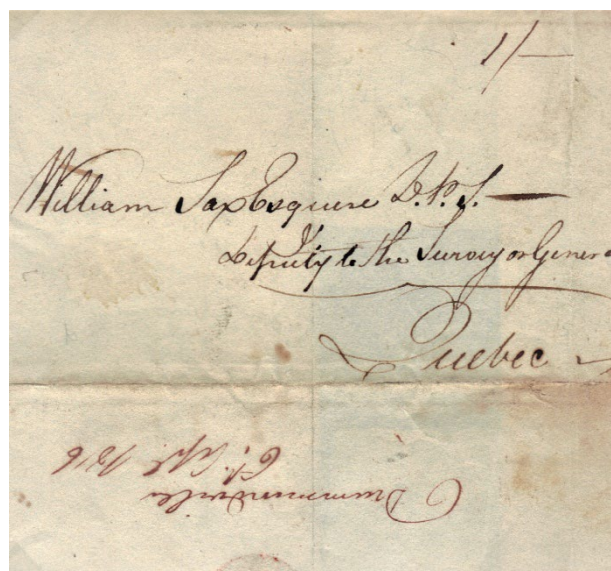 1/-
William Sax Esquire D.P.S.
Deputy to the Surveyor Genera
Quebec
Drummondville
6t. Sept. 1816